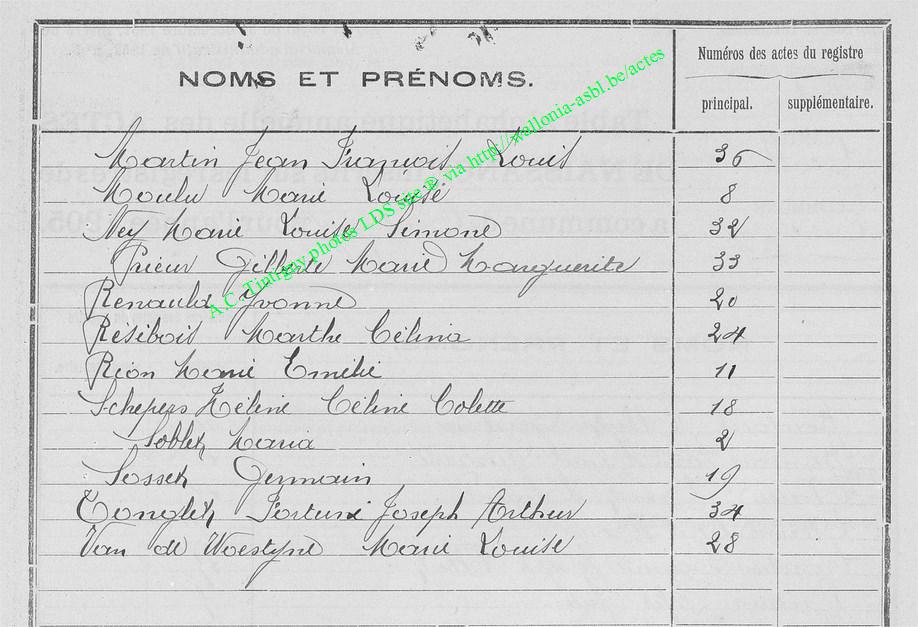 NOMS ET PRÉNOMS.
Numéros des actes du registre
principal. supplémentaire.
Martin Jean François Louis 36
Moulu Marie Louise 8
Ney Marie Louise Simone 32
Prieur Gilberte Marie Marguerite 33
Renauld Yvonne 20
Résibois Marthe Célina 24
Rion Marie Emélie 11
Schepers Hélène Céline Colette 18
Soblet Maria 2
Sosset Germain 19
Tonglet Fortuné Joseph Arthur 34
Van de Woestyne Marie Louise 28
A.C. Tintigny photos LDS site ® via http://wallonia-asbl.be/actes